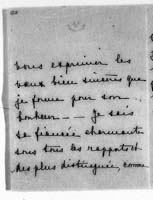 vous exprimer les
vœux bien sincères que
je forme pour son
bonheur — Je sais
sa fiancée charmante
sous tous les rapports et
des plus distinguée, comme